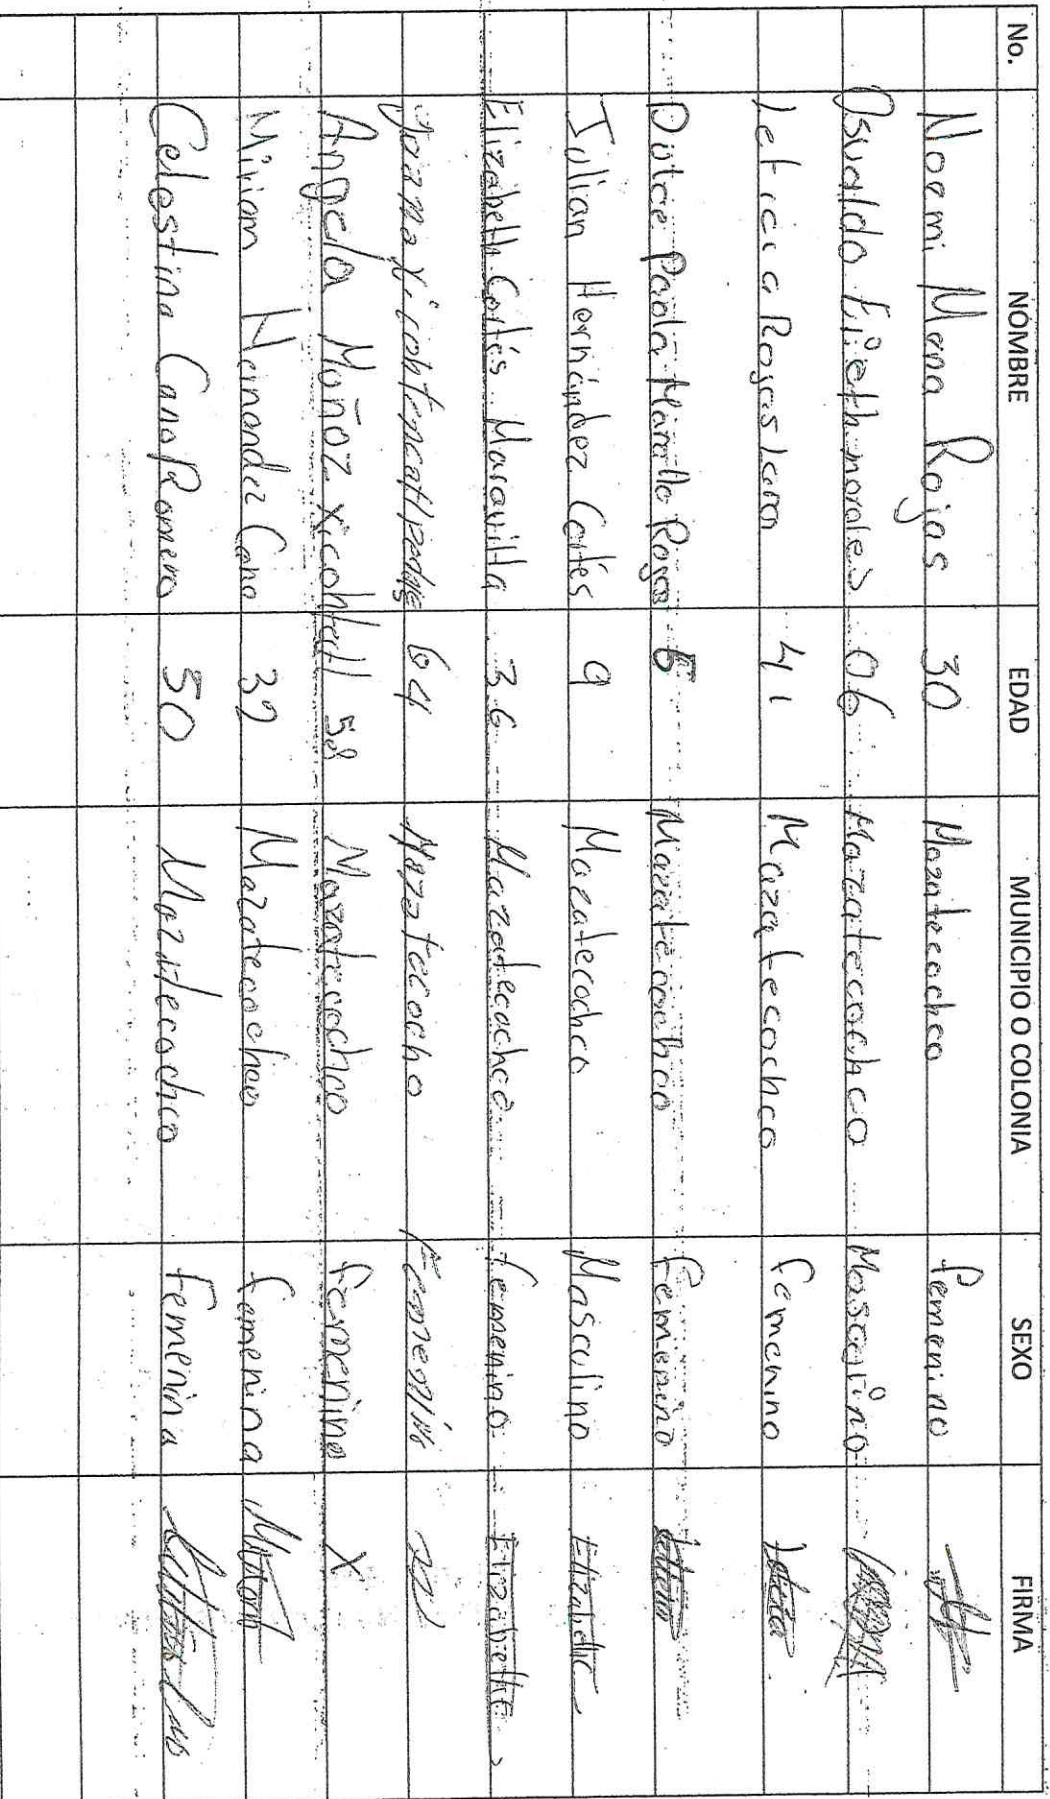 No. NOMBRE EDAD MUNICIPIO O COLONIA SEXO FIRMA
Noemi Mena Rojas 30 Mazatecochco femenino
Osvaldo morales 06 Mazatecochco
Leticia Rojas Lara 41 Mazatecochco femenino Leticia
Dulce Paola Rojas Mazatecochco femenino Leticia
Julian Hernández Cortés 9 Mazatecochco Masculino Elizabeth
Elizabeth Cortés Maravilla 36 Mazatecochco femenino Elizabeth
64
Angela Muñoz xicohtencatl 58 Mazatecochco femenino X
Miriam Hernandez Cano 32 Mazatecochco femenina
Celestina Cano Romero 50 Mazatecochco femenina